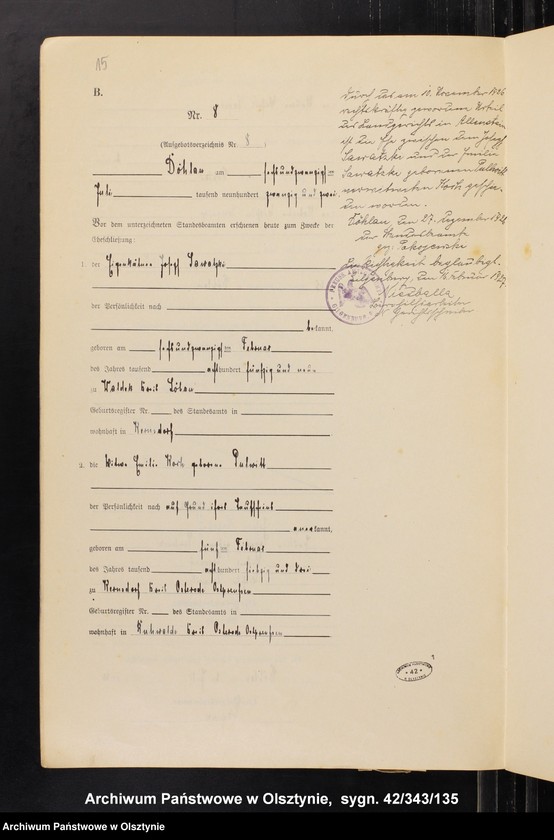 15
B.
Nr. 8
(Aufgebotsverzeichnis Nr. 8 )
Döhlau am sechsundzwanzigsten
Juli tausend neunhundert zwanzig und zwei
Vor dem unterzeichneten Standesbeamten erschienen heute zum Zwecke der
Eheschließung:
1. der Eigenkätner Josef Sawatzki
der Persönlichkeit nach
bekannt,
geboren am sechsundzwanzigsten Februar
des Jahres tausend achthundert fünfzig und neun
zu Waldek Kreis Löbau
Geburtsregister Nr. des Standesamts in
wohnhaft in
2. die Witwe Emilie Koch geborene
der Persönlichkeit nach auf Grund ihres Taufscheins
anerkannt,
geboren am fünften Februar
des Jahres tausend achthundert siebzig und drei
zu Kreis Osterode Ostpreußen
Geburtsregister Nr. des Standesamts in
wohnhaft in Kreis Osterode Ostpreußen
Durch das am 11. November 1926
rechtskräftig gewordene Urteil
des Landgerichts in Allenstein
ist die Ehe zwischen dem Josef
Sawatzki und der Emilie
Sawatzki geborenen
verwitweten Koch geschie-
den worden.
Döhlau, den 27. Dezember 1926
Der Standesbeamte
gez.
42
Archiwum Państwowe w Olsztynie, sygn. 42/343/135
Archiwum Państwowe w Olsztynie